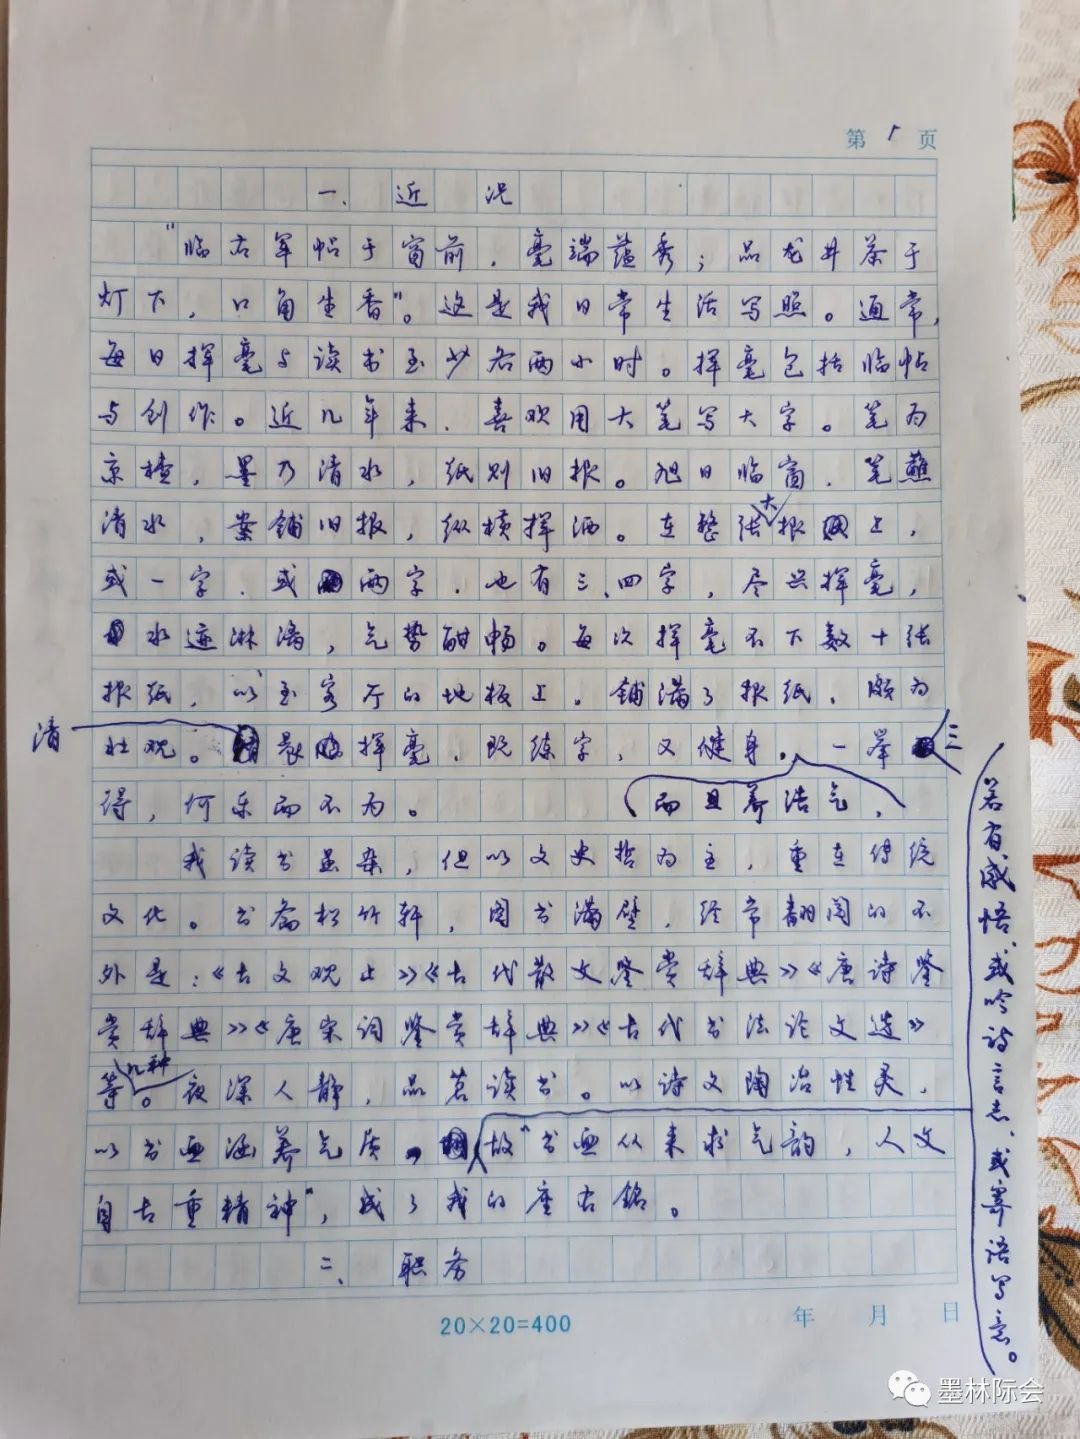 第1页
一、近况
“临右军帖于窗前，毫端蕴秀；品龙井茶于
灯下，口角生香”。这是我日常生活写照。通常，
每日挥毫与读书至少各两小时。挥毫包括临帖
与创作。近几年来，喜欢用大笔写大字。笔为
京楂，墨乃清水，纸则旧报。旭日临窗，笔蘸
清水，案铺旧报，纵横挥洒。在整张大报上，
或一字，或两字，也有三、四字，尽兴挥毫，
水迹淋漓，气势酣畅。每次挥毫不下数十张
报纸，以至客厅的地板上，铺满了报纸，颇为
壮观。清晨挥毫，既练字，又健身，一举三
得，何乐而不为。
而且养浩气，
我读书虽杂，但以文史哲为主，重在传统
文化。书斋松竹轩，图书满壁，经常翻阅的不
外是：《古文观止》《古代散文鉴赏辞典》《唐诗鉴
赏辞典》《唐宋词鉴赏辞典》《古代书法论文选》
等几种。夜深人静，品茗读书。以诗文陶冶性灵，
以书画涵养气质。故“书画从来求气韵，人文
自古重精神”，成了我的座右铭。
若有感悟、或吟诗言志、或寄语写意。
二、职务
20×20=400
年 月 日
墨林际会